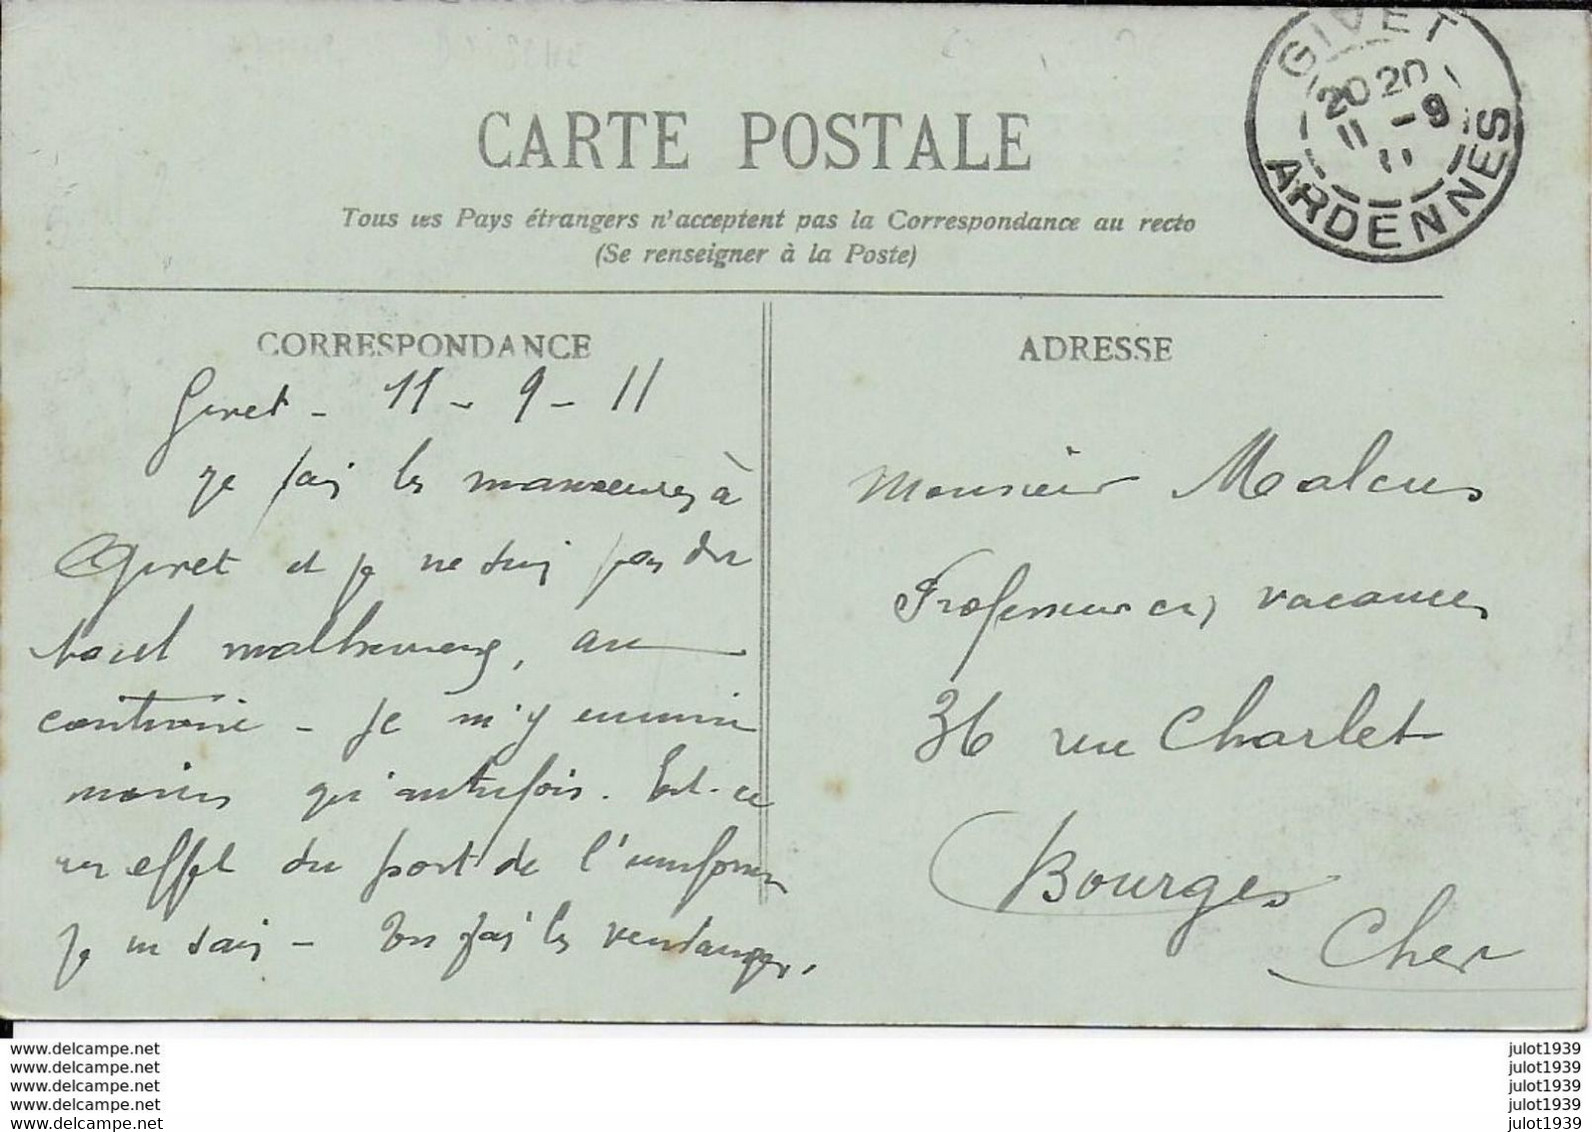 CARTE POSTALE
Tous les Pays étrangers n'acceptent pas la Correspondance au recto
(Se renseigner à la Poste)
GIVET
2020
11 -9
11
ARDENNES
CORRESPONDANCE
Givet - 11 - 9 - 11
Je fais les manoeuvres à
Givet et je ne suis pas du
tout malheureux, au
contraire - Je m'y ennuie
moins qu'autrefois. Est-ce
un effet du port de l'uniforme
Je ne sais - les vendanges.
ADRESSE
Monsieur Malcus
Professeur en vacances
36 rue Charlet
Bourges
Cher
www.delcampe.net
www.delcampe.net
www.delcampe.net
www.delcampe.net
www.delcampe.net
julot1939
julot1939
julot1939
julot1939
julot1939